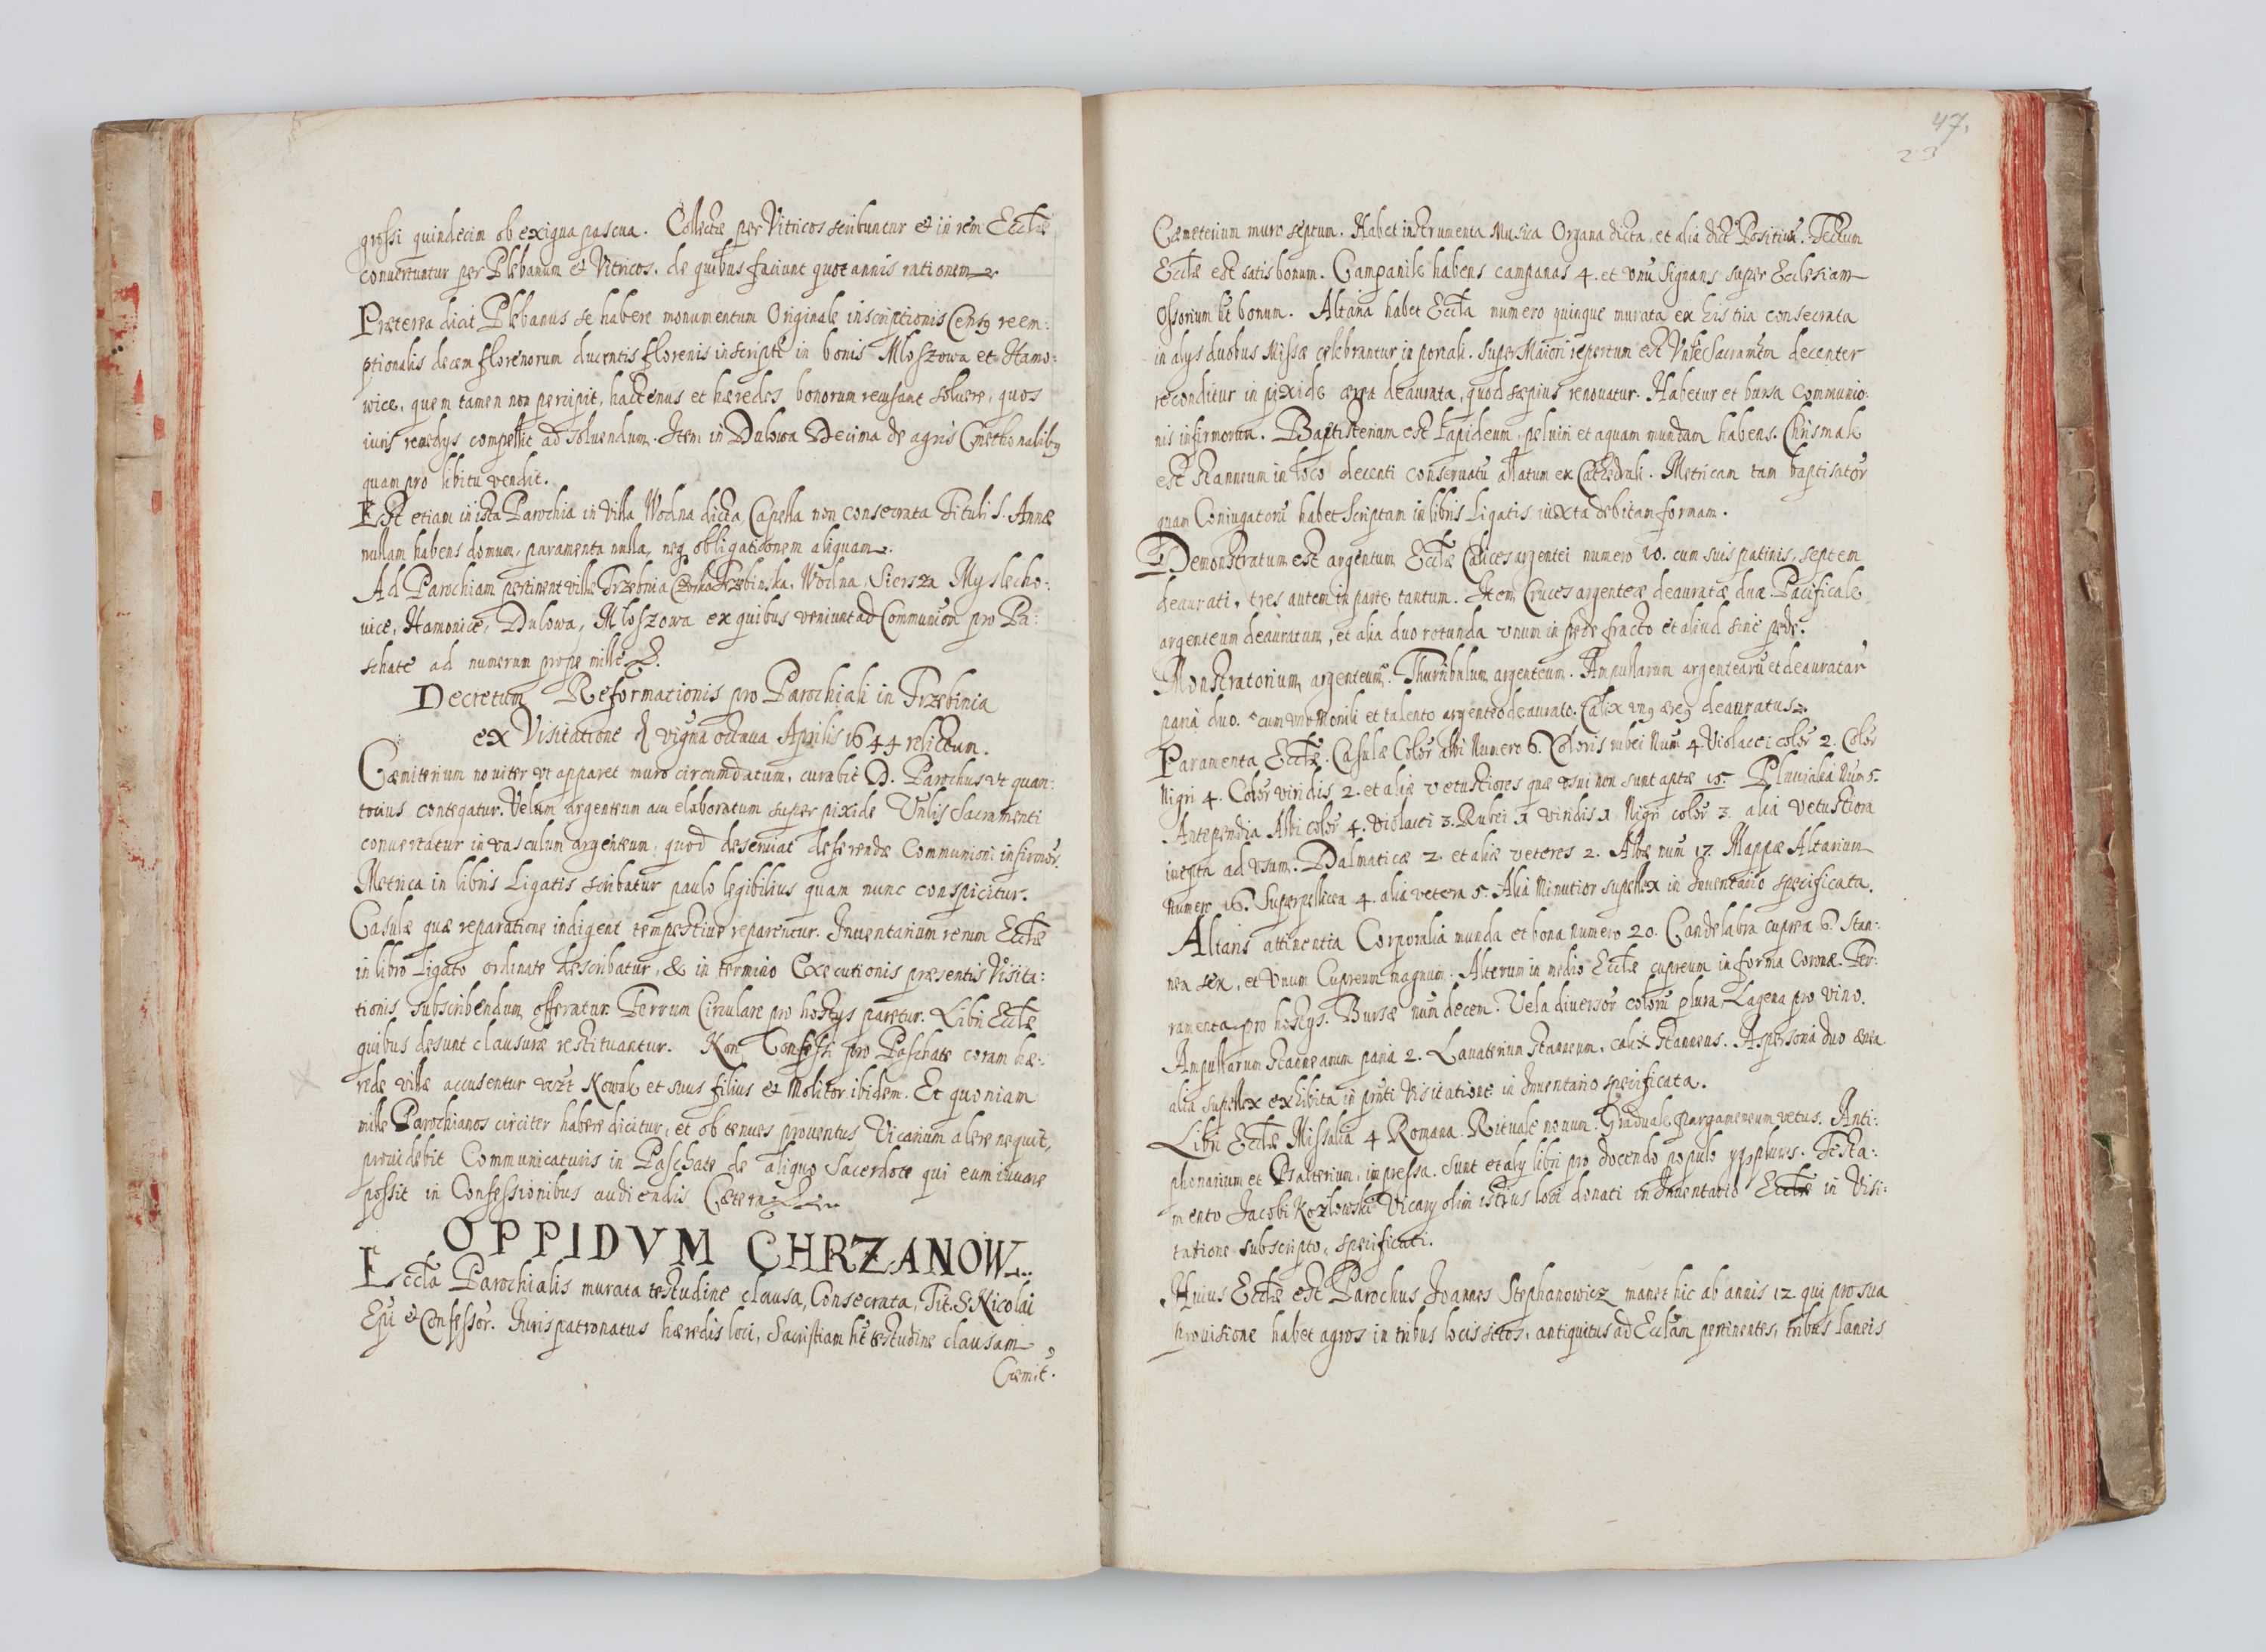 grossi quindecim ob exigua pascua. Collectæ per Vitricos scribuntur et in rem Ecclæ
conuertuntur per Plebanum et Vitricos. de quibus faciunt quotannis rationem
Præterea dicit Plebanus se habere monumentum Originale inscriptionis Censq reem:
ptionalis decem florenorum ducentis florenis inscripti in bonis Mloszowa et Hamo:
wice, quem tamen non percipit, hactenus et hæredes bonorum recusant soluere, quos
iuris remedys compellit ad soluendum. Item in Dulowa Decima de agris Cmethonalibq
quam pro libitu vendit.
Est etiam in ista Parochia in Villa Wodna dicta, Capella non consecrata Tituli S. Annæ
nullam habens domum, paramenta nulla, neq obligationem aliquam.
Ad Parochiam pertinent villæ Trzebinia Trzebinska, Wodna Siersza Myslecho:
uice, Hamouice, Dulowa, Mloszowa ex quibus veniunt ad Communion pro Pa:
schate ad numerum prope mille
Decretum Reformationis pro Parochiali in Trzebinia
ex Visitatione vigna octaua Aprilis 1644 relictum.
Cæmiterium nouiter vt apparet muro circumdatum, curabit D. Parochus vt quan:
tocius contegatur. Velum argenteum acu elaboratum super pixide Vnlis Sacramenti
conuertatur in vasculum argenteum, quod deseruiat deferendæ Communioni infirmor.
Metrica in libris Ligatis scribatur paulo legibilius quam nunc conspicitur.
Casulæ quæ reparatione indigent tempestiue reparentur. Inuentarium rerum Ecclæ
in libro Ligato ordinate describatur, & in termino Executionis præsentis Visita:
tionis subscribendum offeratur. Ferrum Circulare pro hostys paretur. Libri Ecclæ
quibus desunt clausuræ restituantur. Non Confessi pro Paschate coram hæ:
rede villæ accusentur vizt Nowak et suus filius et Molitor ibidem. Et quoniam
mille Parochianos circiter habere dicitur, et ob tenues prouentus Vicarium alere nequit,
prouidebit Communicaturis in Paschate de aliquo Sacerdote qui eum iuuare
possit in Confessionibus audiendis Cætera
OPPIDVM CHRZANOW
Eccla Parochialis murata testudine clausa, Consecrata, Tit. S. Nicolai
Epi et Confessor. Iuris patronatus hæredis loci, Sacristiam ht testudine clausam
Cæmit.
47.
23
Cæmeterium muro septum. Habet instrumenta Musica Organa dicta, et alia dict Positiu. Tectum
Ecclæ est satis bonum. Campanile habens campanas 4. et vnu signans super Ecclesiam
Ossorium ht bonum. Altaria habet Eccla numero quinque murata ex his tria consecrata
in alys duobus Missæ celebrantur in portali. Super Maiori repertum est Vnle Sacramtm decenter
reconditur in pixide ærea deaurata, quod sæpius renouatur. Habetur et bursa Communio:
nis infirmorum. Baptisterium est Lapideum, peluim et aquam mundam habens. Chrismale
est stanneum in loco decenti conseruatu allatum ex Cathedrali. Metricam tam baptisator
quam Coniugatoru habet Scriptam in libris Ligatis iuxta debitam formam.
Demonstratum est argentum Ecclæ Calices argentei numero 10. cum suis patinis, septem
deaurati, tres autem in parte tantum. Item Cruces argenteæ deauratæ duæ. Pacificale
argenteum deauratum, et alia duo rotunda vnum in pede fracto et aliud sine pede.
Monstratorium argenteum. Thuribulum argenteum. Ampullarum argentearu et deauratar
paria duo. cum vno Monili et talento argenteo deaurato. Calix vnq æreq deauratus.
Paramenta Ecclæ. Casulæ Color albi Numero 6. Coloris rubei Num 4. Violacei color 2. Color
Nigri 4. Color viridis 2. et aliæ vetustiores quæ vsui non sunt aptæ 15. Pluuialia Num 5.
Antependia Albi color 4. Violacei 3. Rubei 1 viridis 1 Nigri color 3. alia vetustiora
inepta ad vsum. Dalmaticæ 2. et aliæ veteres 2. Albæ num 17. Mappæ Altarium
numero 16. Superpellicea 4. alia vetera 5. Alia Minutior supellex in Inuentario specificata.
Altaris attinentia Corporalia munda et bona numero 20. Candelabra cuprea 6. Stan:
nea sex, et Vnum Cupreum magnum. Alterum in medio Ecclæ cupreum in forma Coronæ. Fer:
ramenta pro hostys. Bursæ num decem. Vela diuersor coloru plura, Lagena pro vino.
Ampullarum stannearum paria 2. Lauaterium stanneum, calix stanneus. Aspersoria duo ærea
alia supellex exhibita in pnti Visitatione in Inuentario specificata.
Libri Ecclæ Missalia 4 Romana. Rituale nouum. Graduale pargameneum vetus. Anti:
phonarium et Psalterium impressa. Sunt et aly libri pro docendo populo plures. Testa:
mento Jacobi Kozlowski Vicary olim istius loci donati in Inuentario Ecclæ in Visi:
tatione subscripto, specificati.
Huius Ecclæ est Parochus Joannes Stephanowicz manet hic ab annis 12. qui pro sua
prouisione habet agros in tribus locis sitos, antiquitus ad Ecclam pertinentes, tribus laneis